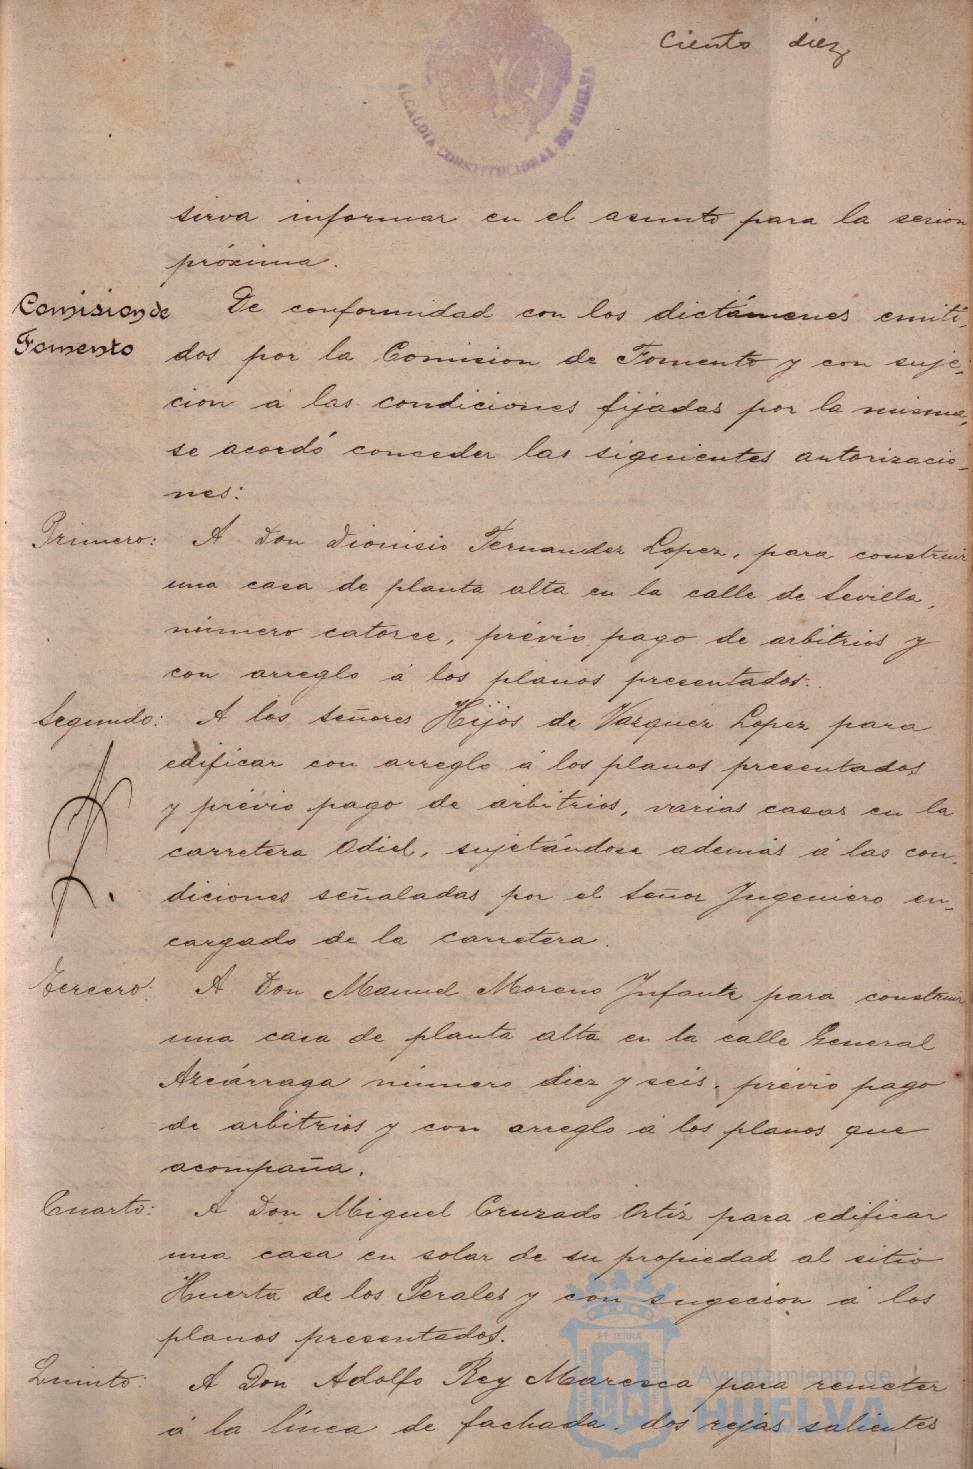 Ciento diez
ALCALDIA CONSTITUCIONAL DE HUELVA
sirva informar en el asunto para la sesion
próxima.
Comision de
Fomento
De conformidad con los dictámenes emiti-
dos por la Comision de Fomento y con suje-
cion á las condiciones fijadas por la misma,
se acordó conceder las siguientes autorizacio-
nes:
Primero: A Don Dionisio Fernandez Lopez, para construir
una casa de planta alta en la calle de Sevilla,
número catorce, prévio pago de arbitrios y
con arreglo á los planos presentados.
Segundo: A los Señores Hijos de Vazquez Lopez para
edificar con arreglo á los planos presentados
y prévio pago de arbitrios, varias casas en la
carretera Odiel, sujetándose además á las con-
diciones señaladas por el Señor Ingeniero en-
cargado de la carretera.
Tercero: A Don Manuel Moreno Infante para construir
una casa de planta alta en la calle General
Azcárraga número diez y seis, prévio pago
de arbitrios y con arreglo á los planos que
acompaña.
Cuarto: A Don Miguel Cruzado Ortíz para edificar
una casa en solar de su propiedad al sitio
Huerta de los Perales y con sugecion á los
planos presentados.
Quinto: A Don Adolfo Rey Maresca para remeter
á la línea de fachada, dos rejas salientes
Ayuntamiento de
HUELVA